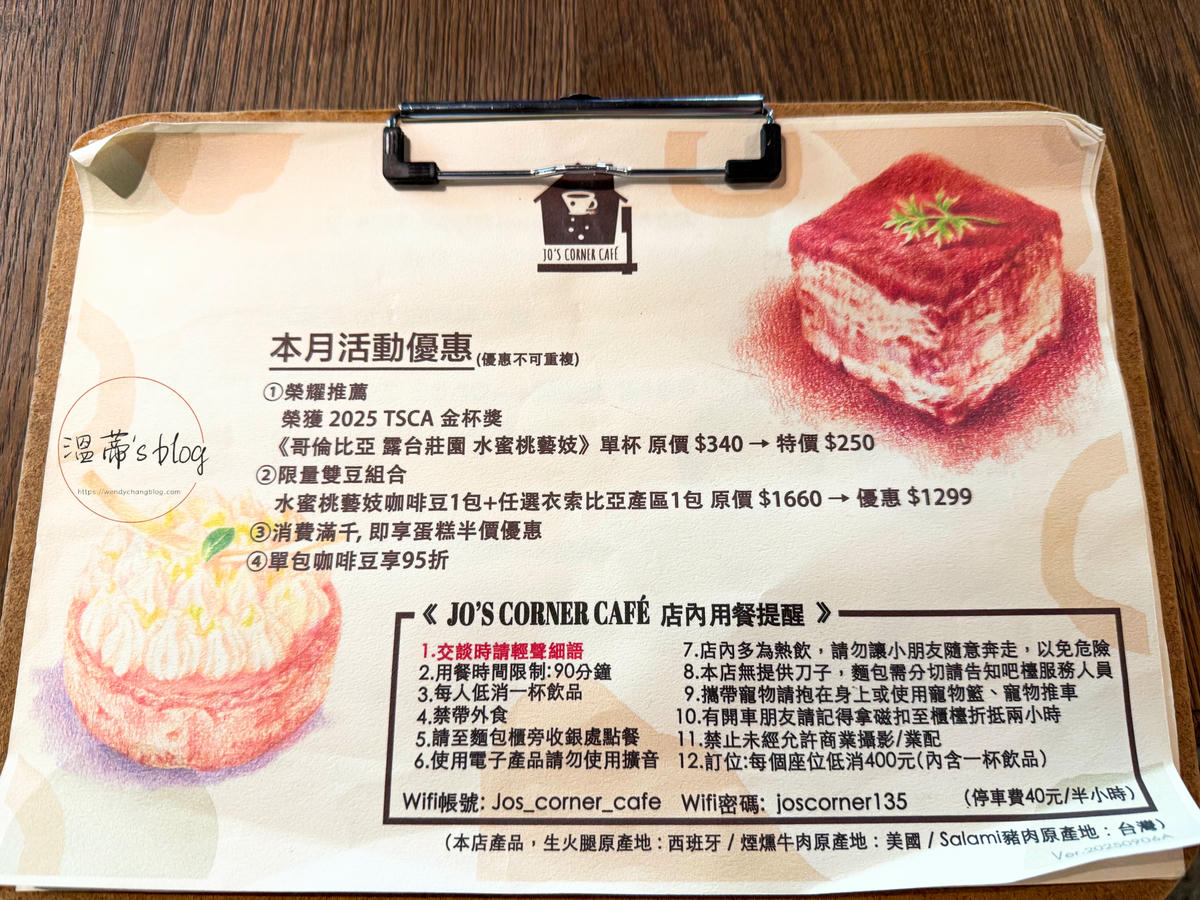 JO'S CORNER CAFÉ
本月活動優惠(優惠不可重複)
①榮耀推薦
榮獲 2025 TSCA 金杯獎
《哥倫比亞 露台莊園 水蜜桃藝妓》單杯 原價 $340 → 特價 $250
②限量雙豆組合
水蜜桃藝妓咖啡豆1包+任選衣索比亞產區1包 原價 $1660 → 優惠 $1299
③消費滿千, 即享蛋糕半價優惠
④單包咖啡豆享95折
溫蒂's blog
https://wendychangblog.com
《 JO'S CORNER CAFÉ 店內用餐提醒 》
1.交談時請輕聲細語
2.用餐時間限制:90分鐘
3.每人低消一杯飲品
4.禁帶外食
5.請至麵包櫃旁收銀處點餐
6.使用電子產品請勿使用擴音
7.店內多為熱飲，請勿讓小朋友隨意奔走，以免危險
8.本店無提供刀子，麵包需分切請告知吧檯服務人員
9.攜帶寵物請抱在身上或使用寵物籃、寵物推車
10.有開車朋友請記得拿磁扣至櫃檯折抵兩小時
11.禁止未經允許商業攝影/業配
12.訂位:每個座位低消400元(內含一杯飲品)
Wifi帳號: Jos_corner_cafe Wifi密碼: joscorner135 (停車費40元/半小時)
(本店產品，生火腿原產地：西班牙 / 煙燻牛肉原產地：美國 / Salami豬肉原產地：台灣)
Ver.20250906A